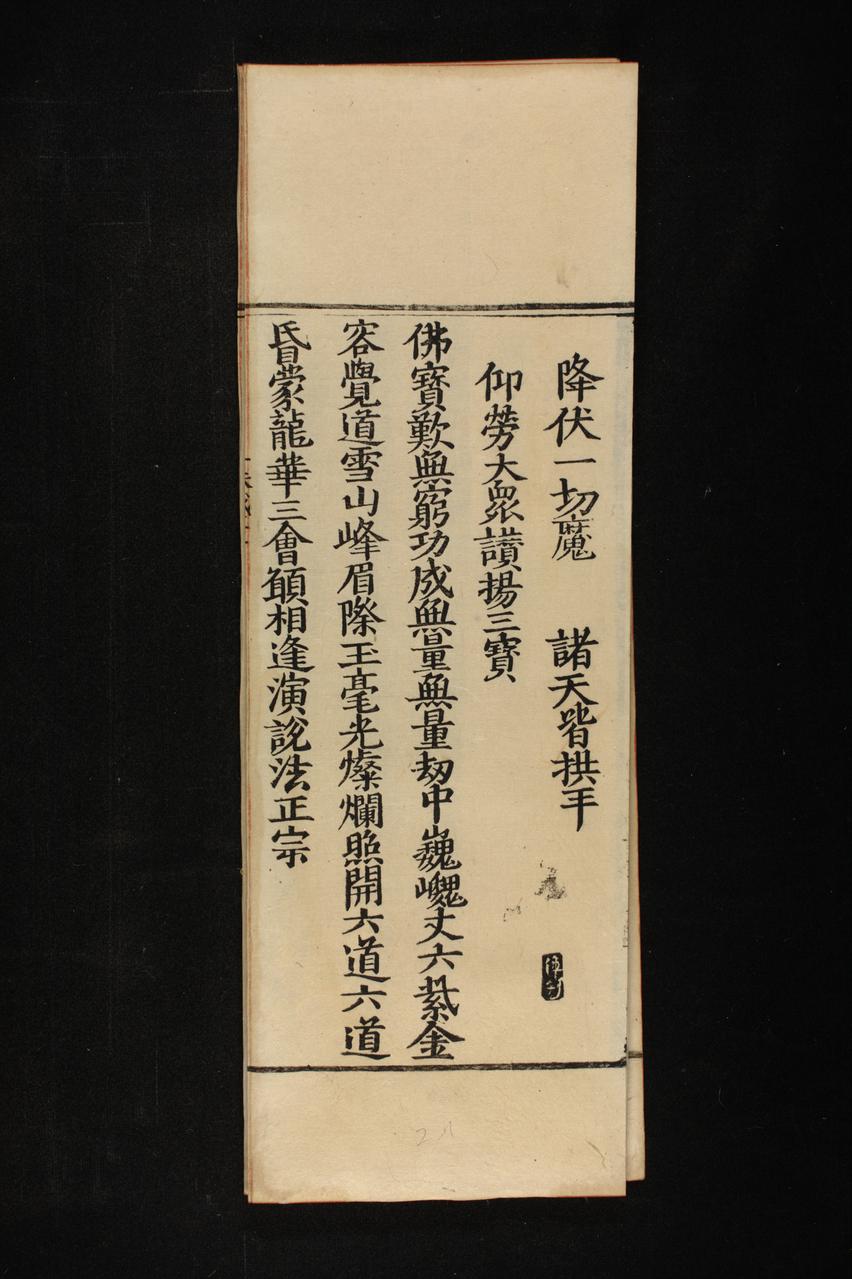 降伏一切魔　諸天皆拱手
仰勞大衆讃揚三寶
佛寶歎無窮功成無量無量刼中巍巍丈六紫金
容覺道雪山峰眉際玉毫光燦爛照開六道六道
昏蒙龍華三會願相逢演說法正宗